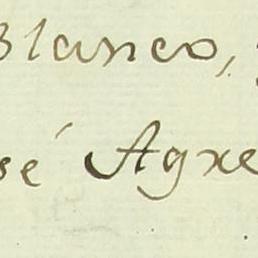 Blanco,
sé Agre